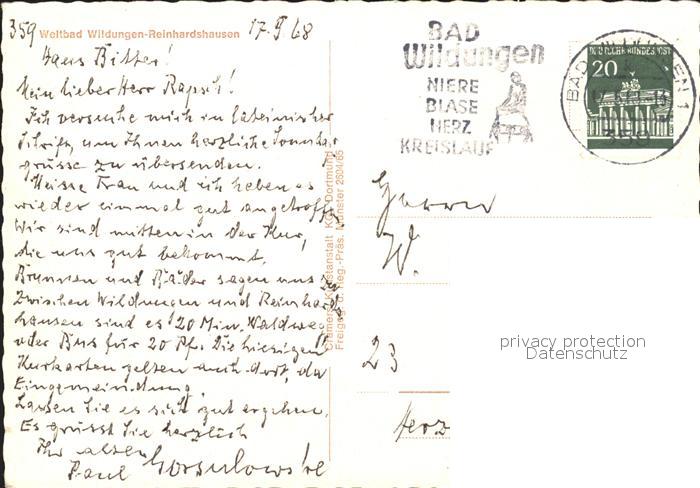 359 Weltbad Wildungen-Reinhardshausen 17. 9 68
Haus Bitter!
Mein lieber Herr Rapsch!
Ich versuche mich in lateinischer
Schrift, um Ihnen herzliche
grüsse zu übersenden.
Meine Frau und ich haben es
wieder einmal gut angetroffen
Wir sind mitten in der Kur,
die uns gut bekommt.
Brunnen und Bäder sagen uns zu
Zwischen Wildungen und Reinhards-
hausen sind es 20 Min. Waldweg
oder Bus für 20 Pf. Die hiesigen
Kurkarten gelten auch dort, da
Eingemeindung.
Lassen Sie es sich gut ergehen.
Es grüsst Sie herzlich
Ihr alter
Paul
Cramers Kunstanstalt KG, Dortmund
Freigeg. d. Reg.-Präs. Münster 2604/65
BAD
Wildungen
NIERE
BLASE
HERZ
KREISLAUF
DEUTSCHE BUNDESPOST
20
BAD WILDUNGEN 1
359
Herrn
W.
23
Herz
privacy protection
Datenschutz